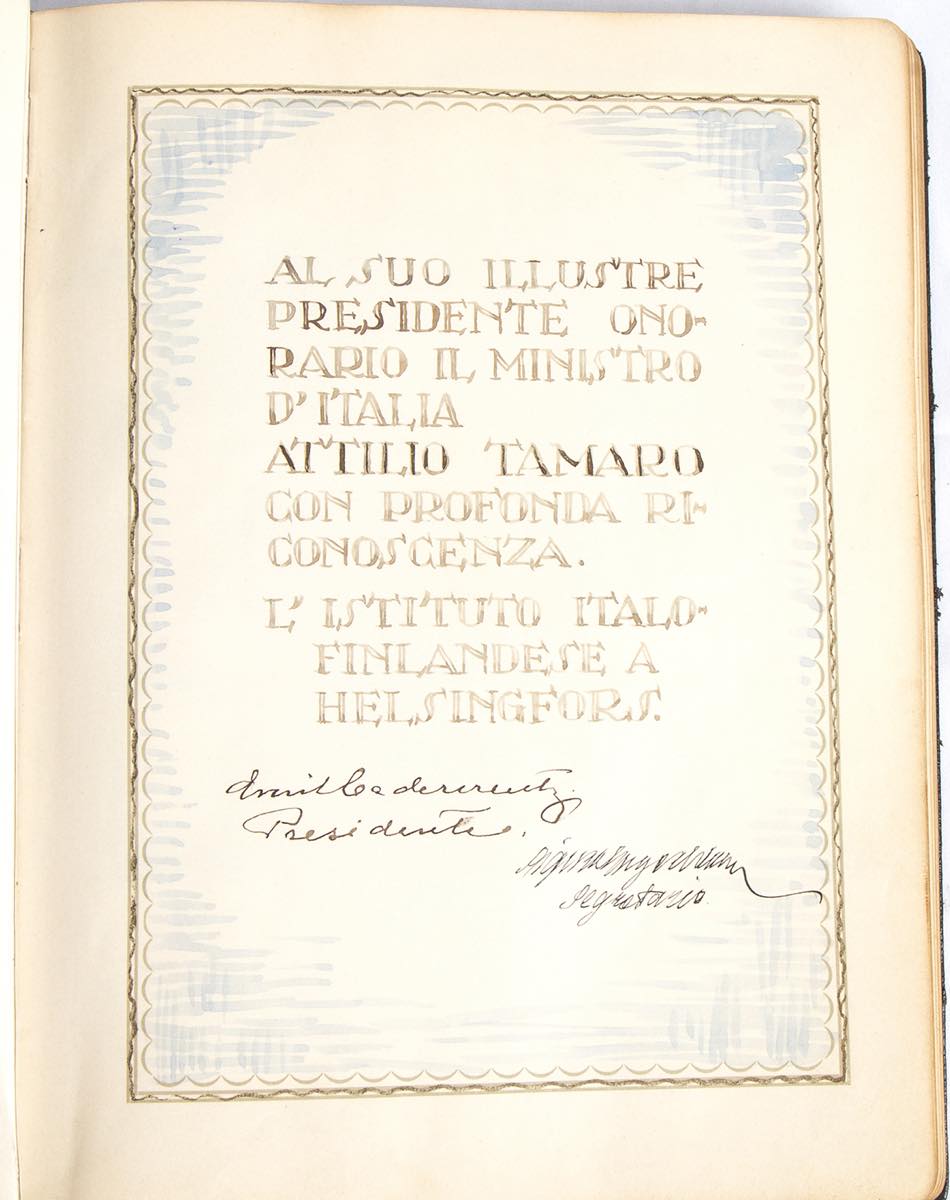 AL SUO ILLUSTRE
PRESIDENTE ONO-
RARIO IL MINISTRO
D'ITALIA
ATTILIO TAMARO
CON PROFONDA RI-
CONOSCENZA.
L'ISTITUTO ITALO-
FINLANDESE A
HELSINGFORS.
Presidente.
Segretario.